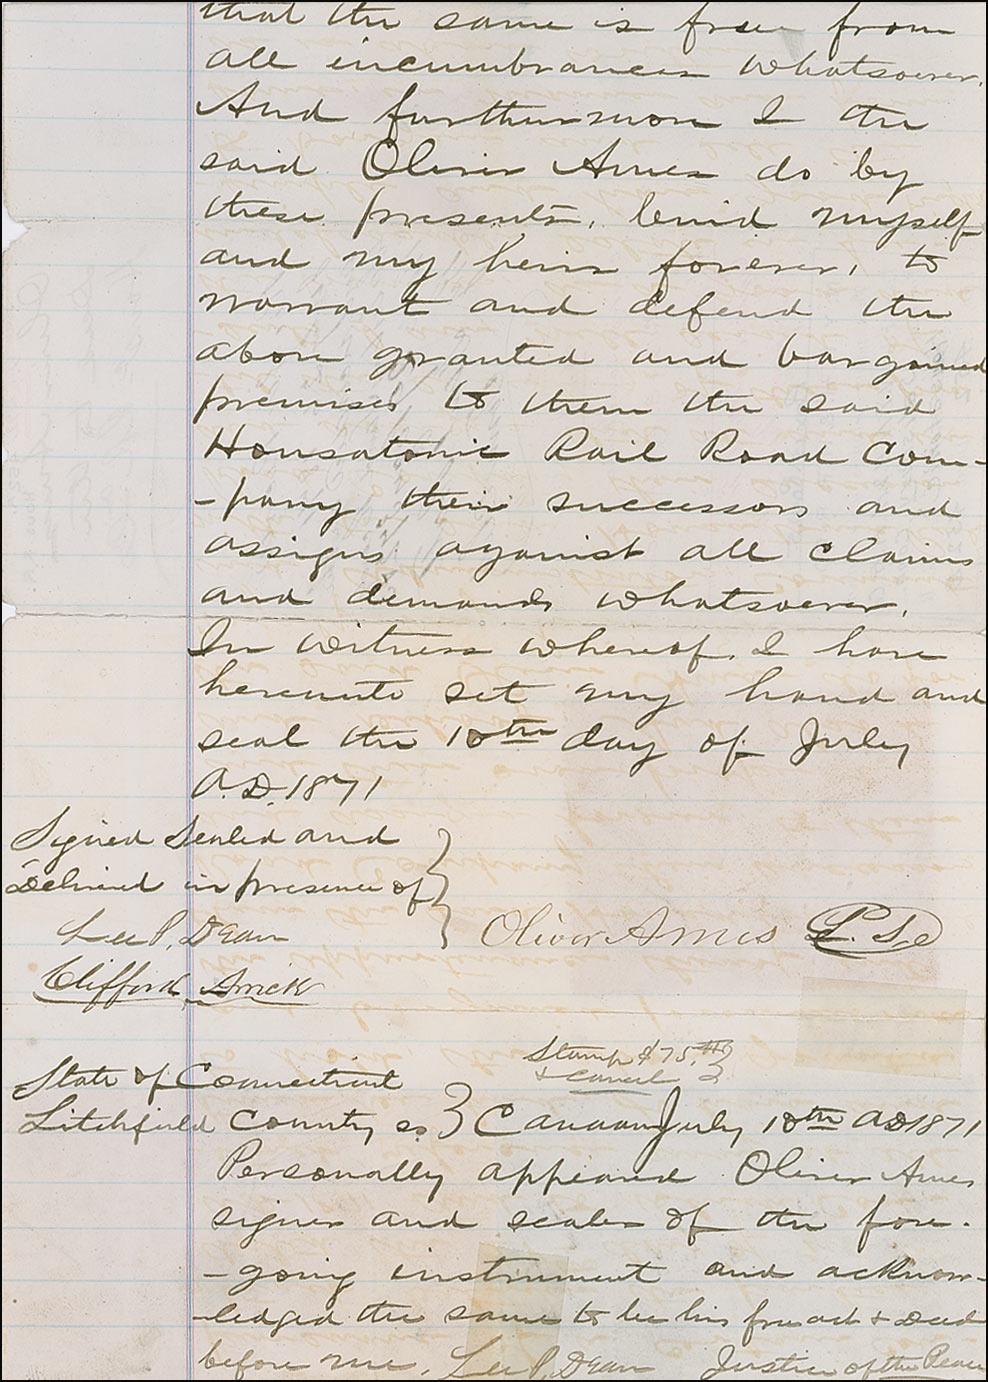 that the same is free from
all incumbrances whatsoever.
And furthermore I the
said Oliver Ames do by
these presents, bind myself
and my heirs forever, to
warrant and defend the
above granted and bargained
premises to them the said
Housatonic Rail Road Com-
-pany their successors and
assigns against all claims
and demands whatsoever.
In witness whereof, I have
hereunto set my hand and
seal the 10th day of July
A.D. 1871
Signed Sealed and
Delivered in presence of
Lee P. Dean
Oliver Ames L.S.
Clifford
Stamp $75.
& cancel
State of Connecticut
Litchfield County ss } Canaan July 10th AD 1871
Personally appeared Oliver Ames
signer and sealer of the fore-
-going instrument and acknow-
-ledged the same to be his free act & deed
before me, Lee P. Dean Justice of the Peace